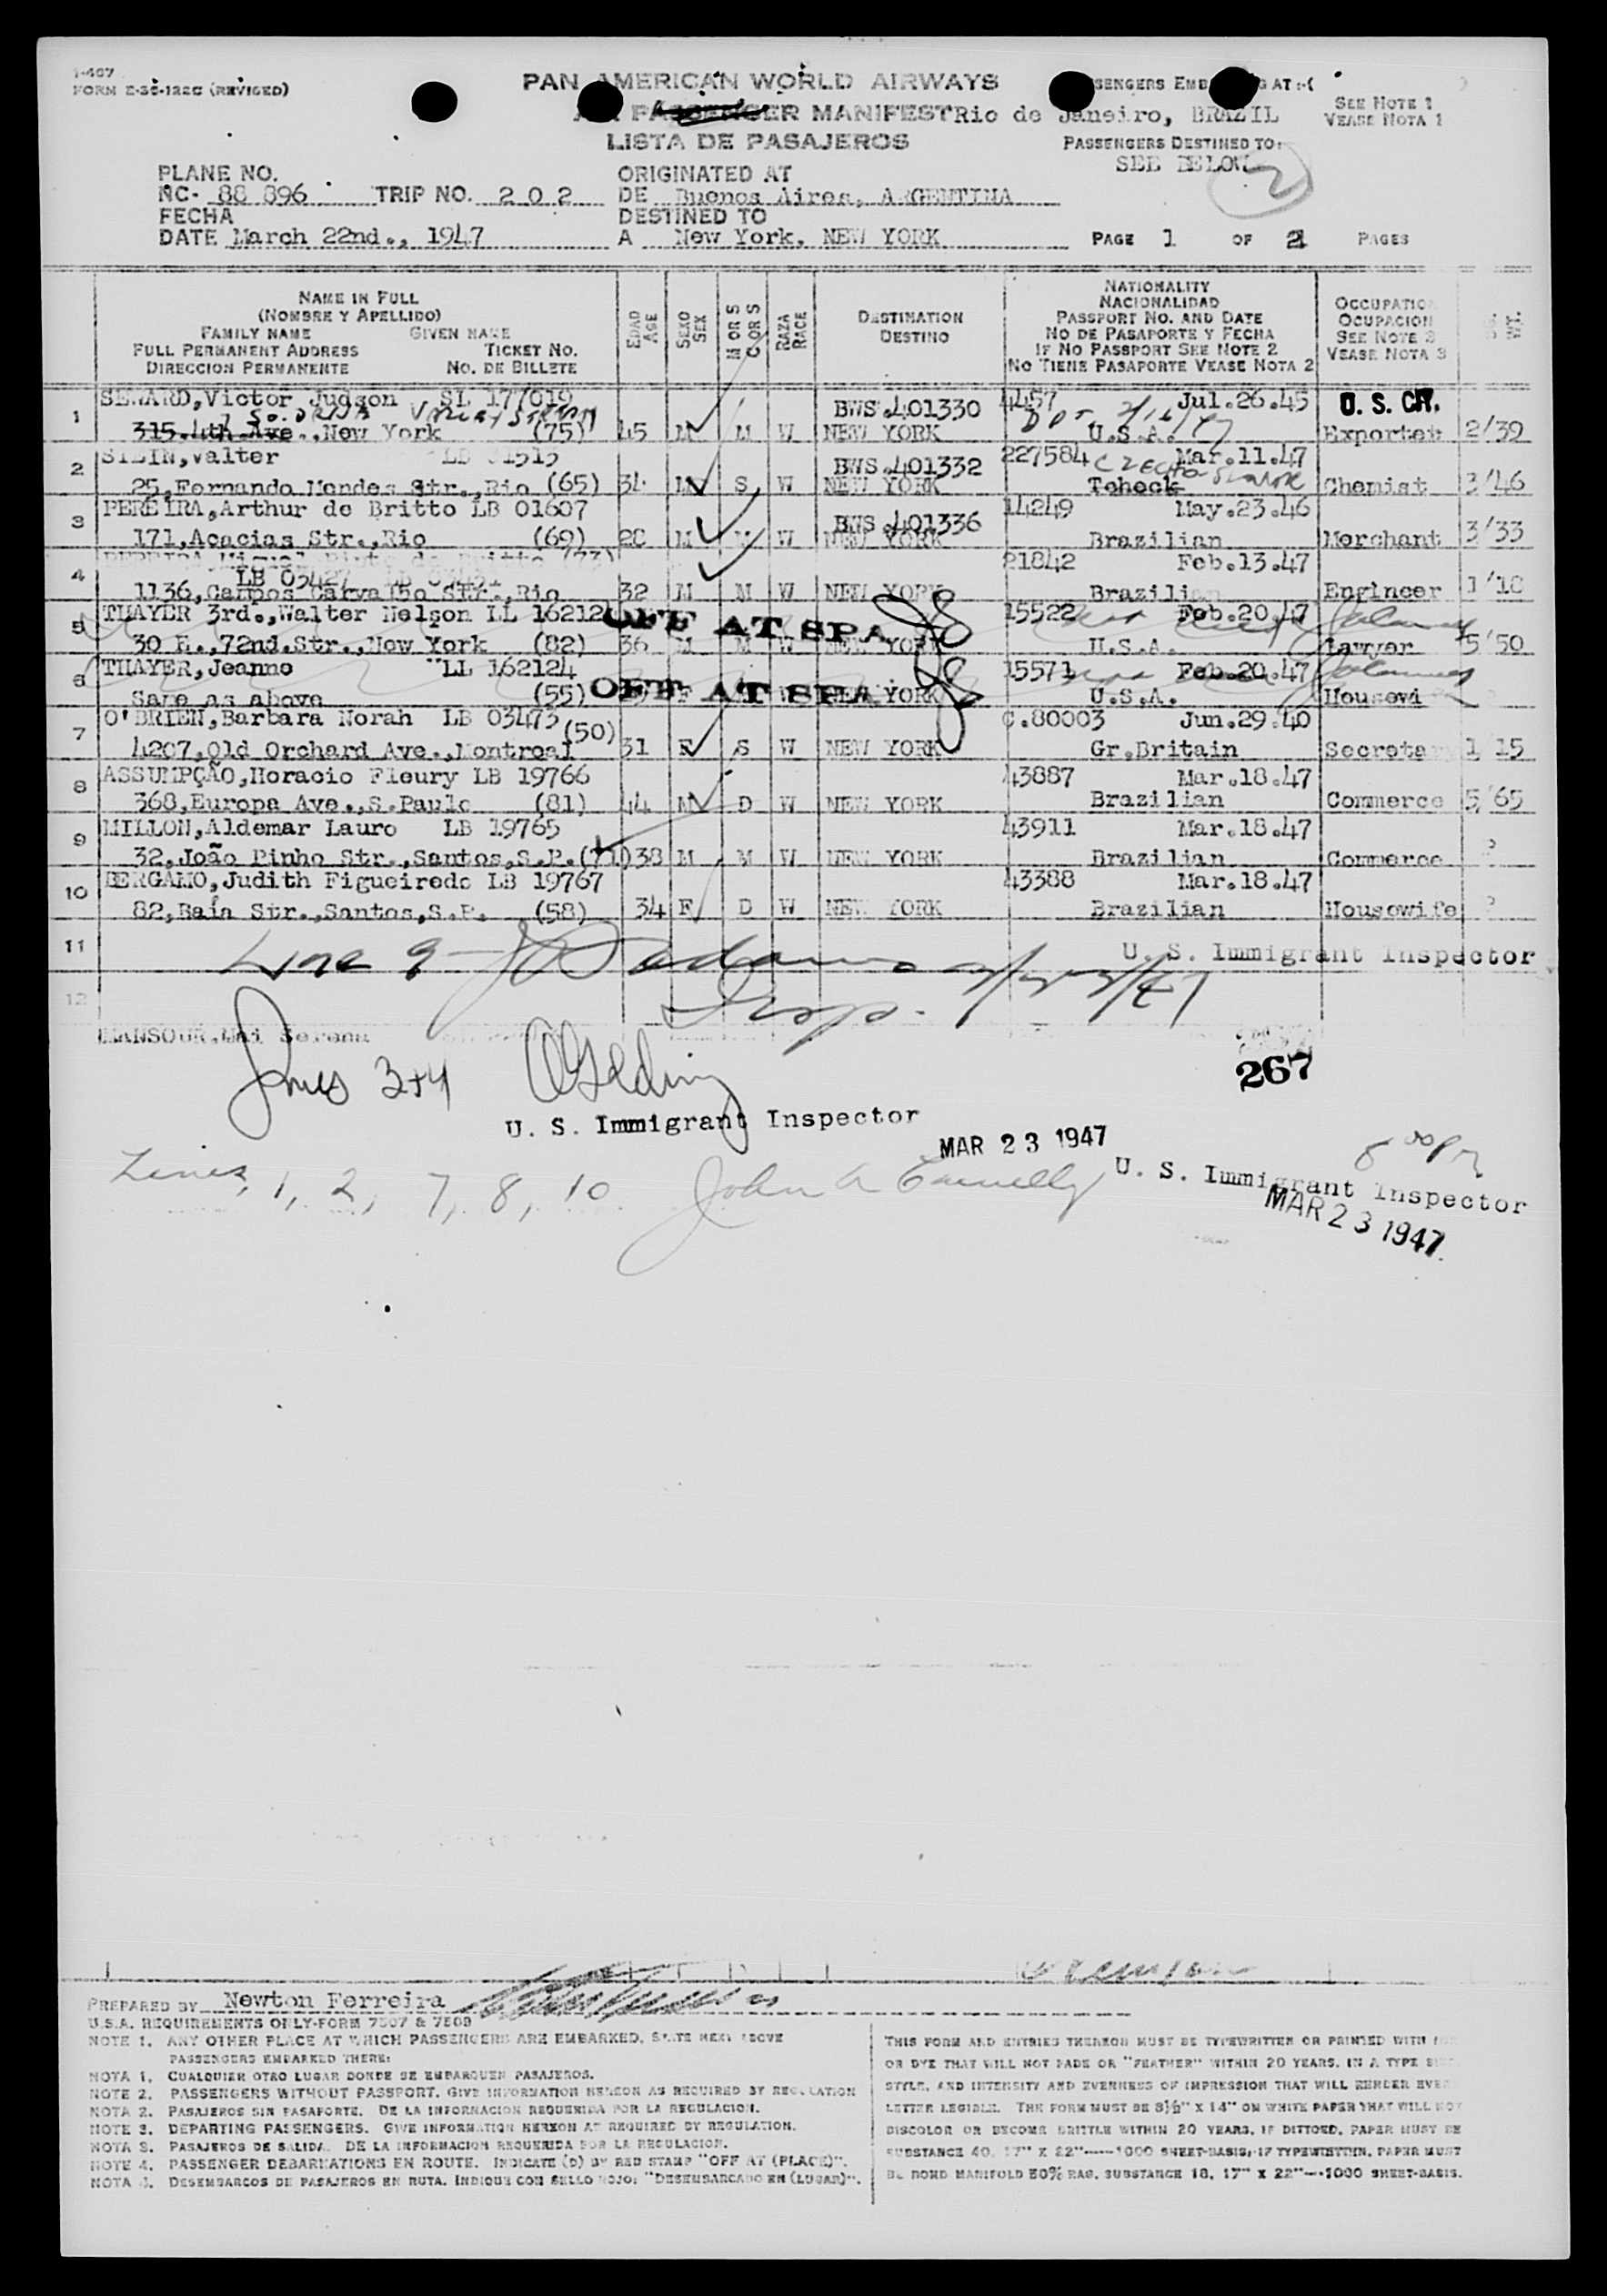 I-407
FORM E-36-122C (REVISED)
PAN AMERICAN WORLD AIRWAYS
PASSENGER MANIFEST
LISTA DE PASAJEROS
AT:-(
Rio de Janeiro, BRAZIL
PASSENGERS DESTINED TO:
SEE BELOW
2
SEE NOTE 1
VEASE NOTA 1
PLANE NO.
NC- 88 896 TRIP NO. 2 0 2
FECHA
DATE March 22nd., 1947
ORIGINATED AT
DE Buenos Aires, ARGENTINA
DESTINED TO
A New York, NEW YORK
PAGE 1 OF 2 PAGES
NAME IN FULL
(NOMBRE Y APELLIDO)
FAMILY NAME GIVEN NAME
FULL PERMANENT ADDRESS TICKET NO.
DIRECCION PERMANENTE NO. DE BILLETE
EDAD
AGE
SEXO
SEX
M OR S
C OR S
RAZA
RACE
DESTINATION
DESTINO
NATIONALITY
NACIONALIDAD
PASSPORT NO. AND DATE
NO DE PASAPORTE Y FECHA
IF NO PASSPORT SEE NOTE 2
NO TIENE PASAPORTE VEASE NOTA 2
OCCUPATION
OCUPACION
SEE NOTE 3
VEASE NOTA 3
WT.
1 SEWARD, Victor Judson SL 177019 BWS.401330 4457 Jul.26.45 U. S. CIT.
315.4th Ave., New York (75) 45 M M W NEW YORK U.S.A. Exporter 2/39
2 Walter BWS.401332 227584 Mar.11.47
25, Fernando Mendes Str., Rio (65) 34 M S W NEW YORK Tcheck Chemist 3/46
3 PEREIRA, Arthur de Britto LB 01607 BWS.401336 14249 May.23.46
171, Acacias Str., Rio (69) 28 M M W NEW YORK Brazilian Merchant 3/33
4 21842 Feb.13.47
1136, Campos Carvalho Str., Rio 32 M M W NEW YORK Brazilian Engineer 1/18
5 THAYER 3rd., Walter Nelson LL 16212 OFF AT SPA 15522 Feb.20.47
30 E., 72nd. Str., New York (82) 36 M M W NEW YORK U.S.A. Lawyer 5/50
6 THAYER, Jeanne LL 162124 OFF AT SPA 15571 Feb.20.47
Same as above (55) F W NEW YORK U.S.A. Housewi
7 O'BRIEN, Barbara Norah LB 03473 (50) C.80003 Jun.29.40
4207, Old Orchard Ave., Montreal 31 F S W NEW YORK Gr. Britain Secreta 1/15
8 ASSUMPÇÃO, Horacio Fleury LB 19766 43887 Mar.18.47
368, Europa Ave., S. Paulo (81) 44 M D W NEW YORK Brazilian Commerce 5/65
9 MILLON, Aldemar Lauro LB 19765 43911 Mar.18.47
32, João Pinho Str., Santos, S.P. (71) 38 M M W NEW YORK Brazilian Commerce
10 BERGAMO, Judith Figueiredo LB 19767 43388 Mar.18.47
82, Baía Str., Santos, S.P. (58) 34 F D W NEW YORK Brazilian Housewife
11 Line 9 U. S. Immigrant Inspector
12 Insp.
MANSOUR,
267
3+4
U. S. Immigrant Inspector
MAR 23 1947
Lines, 1, 2, 7, 8, 10 John
8 00 PM
U. S. Immigrant Inspector
MAR 23 1947
PREPARED BY Newton Ferreira
U.S.A. REQUIREMENTS ONLY-FORM 7507 & 7509
NOTE 1. ANY OTHER PLACE AT WHICH PASSENGERS ARE EMBARKED. STATE NEXT ABOVE
PASSENGERS EMBARKED THERE:
NOTA 1. CUALQUIER OTRO LUGAR DONDE SE EMBARQUEN PASAJEROS.
NOTE 2. PASSENGERS WITHOUT PASSPORT. GIVE INFORMATION HEREON AS REQUIRED BY REGULATION
NOTA 2. PASAJEROS SIN PASAPORTE. DE LA INFORMACION REQUERIDA POR LA REGULACION.
NOTE 3. DEPARTING PASSENGERS. GIVE INFORMATION HEREON AS REQUIRED BY REGULATION.
NOTA 3. PASAJEROS DE SALIDA. DE LA INFORMACION REQUERIDA POR LA REGULACION.
NOTE 4. PASSENGER DEBARKATIONS EN ROUTE. INDICATE (D) BY RED STAMP "OFF AT (PLACE)".
NOTA 4. DESEMBARCOS DE PASAJEROS EN RUTA. INDIQUE CON SELLO ROJO: "DESEMBARCADO EN (LUGAR)".
THIS FORM AND ENTRIES THEREON MUST BE TYPEWRITTEN OR PRINTED WITH
OR DYE THAT WILL NOT FADE OR "FEATHER" WITHIN 20 YEARS. IN A TYPE
STYLE, AND INTENSITY AND EVENNESS OF IMPRESSION THAT WILL RENDER
LETTER LEGIBLE. THE FORM MUST BE 8½" X 14" ON WHITE PAPER THAT WILL NOT
DISCOLOR OR BECOME BRITTLE WITHIN 20 YEARS. IF DITTOED, PAPER MUST BE
SUBSTANCE 40, 17" X 22"-----1000 SHEET-BASIS; IF TYPEWRITTEN, PAPER MUST
BE BOND MANIFOLD 50% RAG, SUBSTANCE 18, 17" X 22"--1000 SHEET-BASIS.